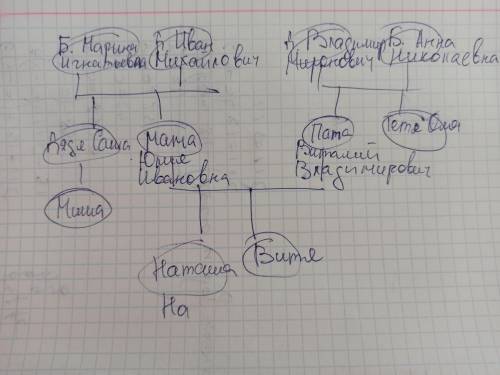 Б. Марина
Игнатьевна
Д. Иван
Михайлович
Д. Владимир
Миронович
Б. Анна
Николаевна
Дядя Саша
Мама
Юлия
Ивановна
Папа
Виталий
Владимирович
Тетя Оля
Миша
Наташа
На
Витя